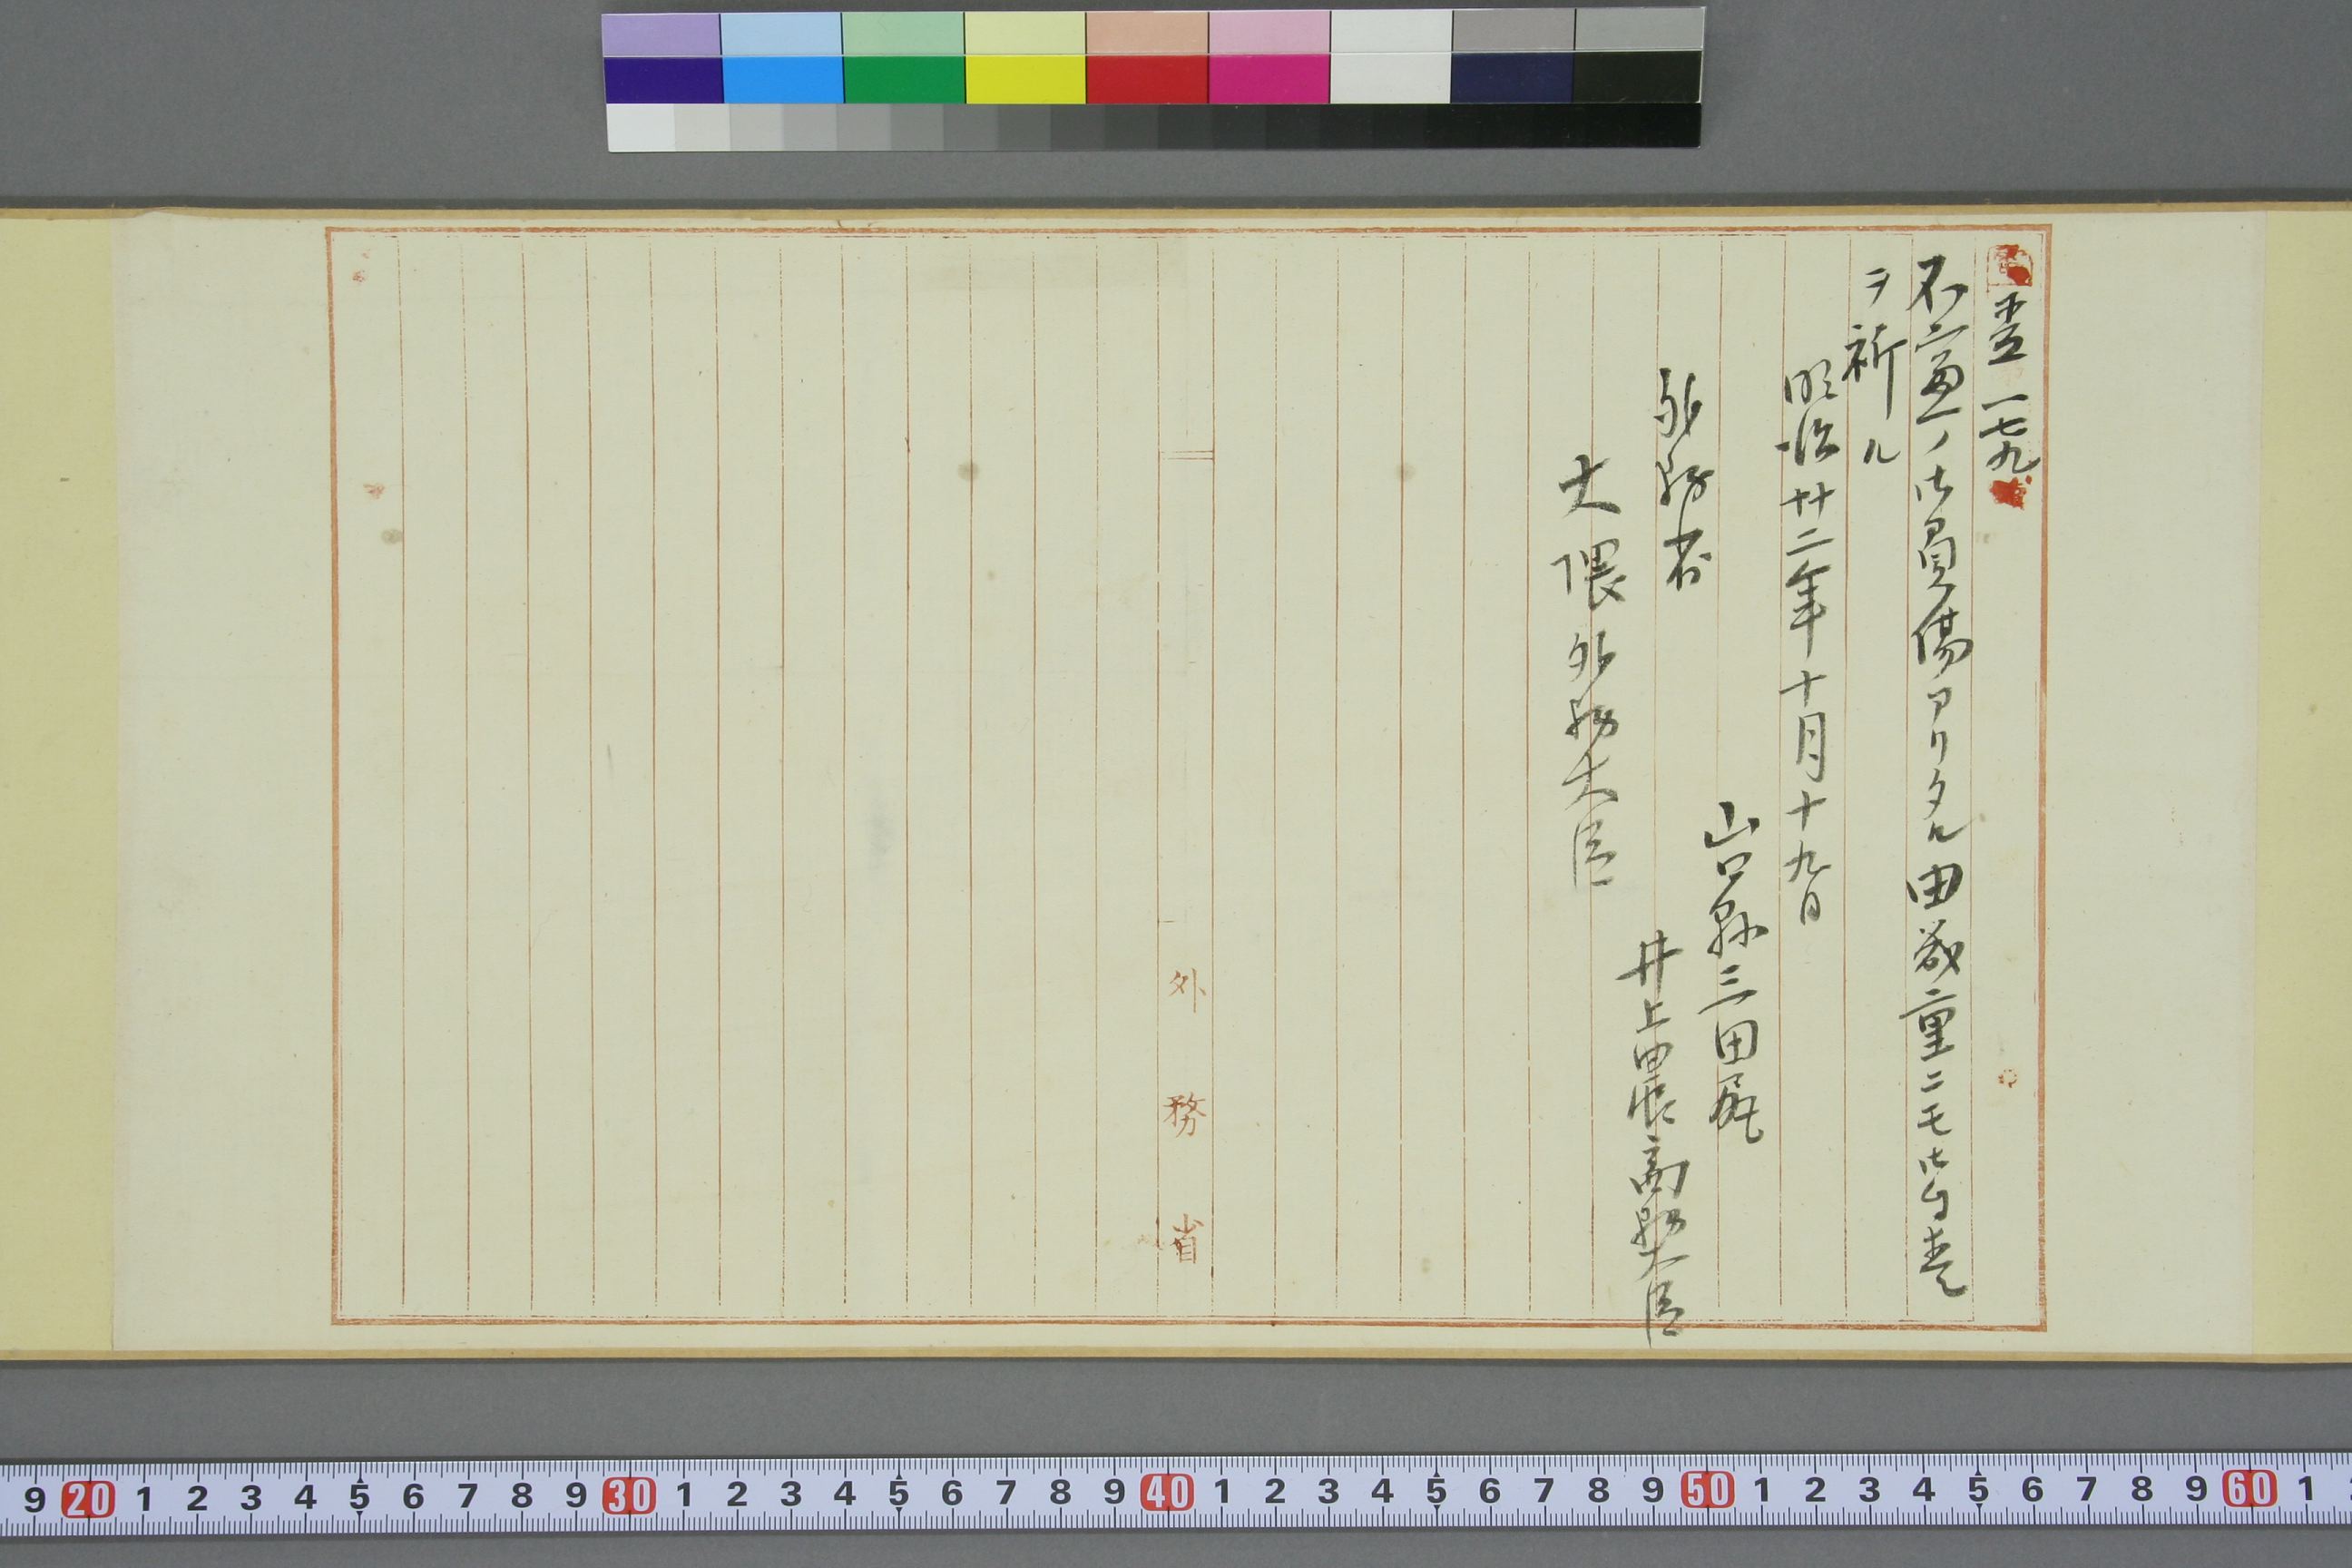 一七九
不慮ノ御負傷アリタル由嚴重ニモ御自愛
ヲ祈ル
明治廿二年十月十九日
山口縣三田尻
井上農商務大臣
外務省
大隈外務大臣
外務省
9 20 1 2 3 4 5 6 7 8 9 30 1 2 3 4 5 6 7 8 9 40 1 2 3 4 5 6 7 8 9 50 1 2 3 4 5 6 7 8 9 60 1